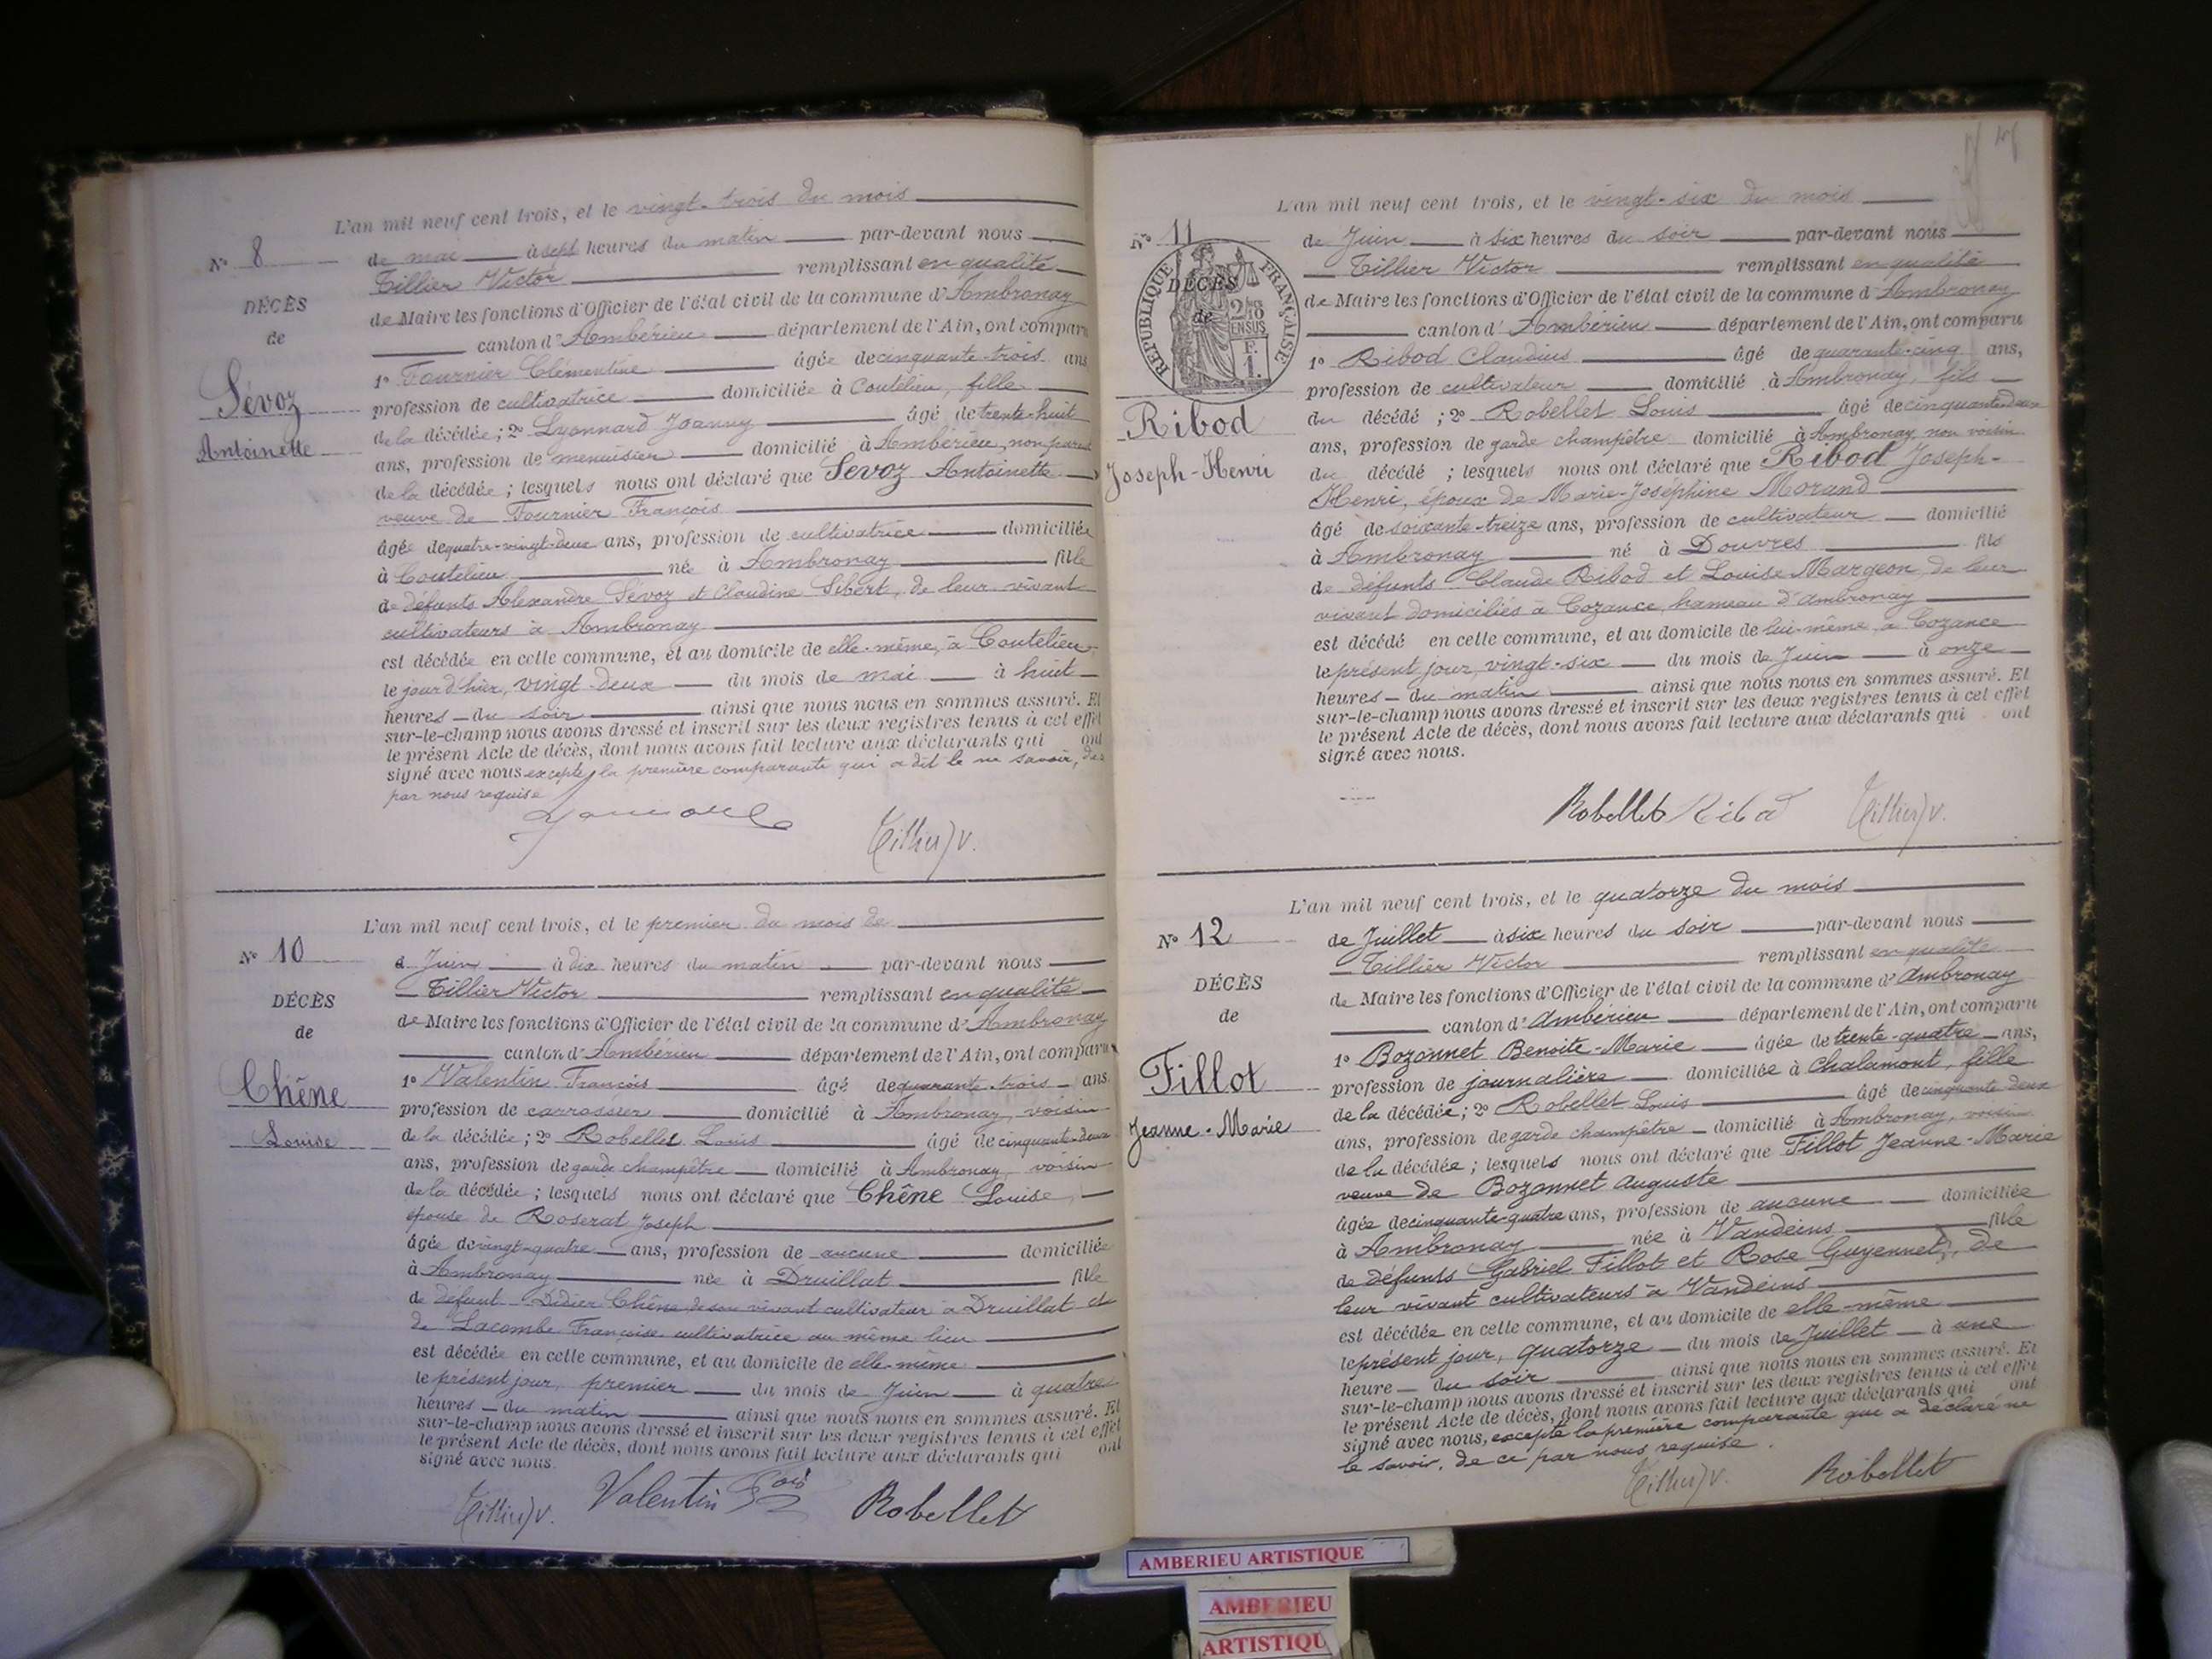 L'an mil neuf cent trois, et le vingt-trois du mois
de mai à sept heures du matin par-devant nous
Tillier Victor remplissant en qualité
de Maire les fonctions d'Officier de l'état civil de la commune d'Ambronay
canton d'Ambérieu département de l'Ain, ont comparu
1° Fournier Clémentine âgée de cinquante-trois ans
profession de cultivatrice domiciliée à Coutelieu, fille
de la décédée; 2° Lyonnard Joanny âgé de trente-huit
ans, profession de menuisier domicilié à Ambérieu, non parent
de la décédée; lesquels nous ont déclaré que Sevoz Antoinette
veuve de Fournier François
âgée de quatre-vingt-deux ans, profession de cultivatrice domiciliée
à Coutelieu née à Ambronay fille
de défunts Alexandre Sévoz et Claudine Sibert, de leur vivant
cultivateurs à Ambronay
est décédée en cette commune, et au domicile de elle-même, à Coutelieu,
le jour d'hier, vingt-deux du mois de mai à huit
heures du soir ainsi que nous nous en sommes assuré. Et
sur-le-champ nous avons dressé et inscrit sur les deux registres tenus à cet effet
le présent Acte de décès, dont nous avons fait lecture aux déclarants qui ont
signé avec nous excepté la première comparante qui a dit le ne savoir, de
par nous requise
Tillier V.
N° 8
DÉCÈS
de
Sévoz
Antoinette
L'an mil neuf cent trois, et le premier du mois de
Juin à dix heures du matin par-devant nous
Tillier Victor remplissant en qualité
de Maire les fonctions d'Officier de l'état civil de la commune d'Ambronay
canton d'Ambérieu département de l'Ain, ont comparu
1° Valentin François âgé de quarante-trois ans
profession de carrossier domicilié à Ambronay, voisin
de la décédée; 2° Robellet Louis âgé de cinquante-deux
ans, profession de garde champêtre domicilié à Ambronay, voisin
de la décédée; lesquels nous ont déclaré que Chêne Louise,
épouse de Roserat Joseph
âgée de vingt-quatre ans, profession de aucune domiciliée
à Ambronay née à Druillat fille
de défunt Didier Chêne de son vivant cultivateur à Druillat et
de Lacombe Françoise cultivatrice au même lieu
est décédée en cette commune, et au domicile de elle-même
le présent jour, premier du mois de Juin à quatre
heures du matin ainsi que nous nous en sommes assuré. Et
sur-le-champ nous avons dressé et inscrit sur les deux registres tenus à cet effet
le présent Acte de décès, dont nous avons fait lecture aux déclarants qui ont
signé avec nous.
Tillier V. Valentin Fçois Robellet
N° 10
DÉCÈS
de
Chêne
Louise
L'an mil neuf cent trois, et le vingt-six du mois
de Juin à six heures du soir par-devant nous
Tillier Victor remplissant en qualité
de Maire les fonctions d'Officier de l'état civil de la commune d'Ambronay
canton d'Ambérieu département de l'Ain, ont comparu
1° Ribod Claudius âgé de quarante-cinq ans,
profession de cultivateur domicilié à Ambronay, fils
du décédé; 2° Robellet Louis âgé de cinquante-deux
ans, profession de garde champêtre domicilié à Ambronay non voisin
du décédé; lesquels nous ont déclaré que Ribod Joseph-
Henri, époux de Marie-Joséphine Morand
âgé de soixante-treize ans, profession de cultivateur domicilié
à Ambronay né à Douvres fils
de défunts Claude Ribod et Louise Margeon, de leur
vivant domiciliés à Cozance, hameau d'Ambronay
est décédé en cette commune, et au domicile de lui-même, à Cozance
le présent jour, vingt-six du mois de Juin à onze
heures du matin ainsi que nous nous en sommes assuré. Et
sur-le-champ nous avons dressé et inscrit sur les deux registres tenus à cet effet
le présent Acte de décès, dont nous avons fait lecture aux déclarants qui ont
signé avec nous.
Robellet Ribod Tillier V.
N° 11
RÉPUBLIQUE FRANÇAISE
DÉCÈS
de
2/10
EN SUS
F.
1.
Ribod
Joseph-Henri
L'an mil neuf cent trois, et le quatorze du mois
de Juillet à six heures du soir par-devant nous
Tillier Victor remplissant en qualité
de Maire les fonctions d'Officier de l'état civil de la commune d'Ambronay
canton d'Ambérieu département de l'Ain, ont comparu
1° Bozonnet Benoite-Marie âgée de trente-quatre ans,
profession de journalière domiciliée à Chalamont, fille
de la décédée; 2° Robellet Louis âgé de cinquante-deux
ans, profession de garde champêtre domicilié à Ambronay, voisin
de la décédée; lesquels nous ont déclaré que Fillot Jeanne-Marie
veuve de Bozonnet Auguste
âgée de cinquante-quatre ans, profession de aucune domiciliée
à Ambronay née à Vandeins fille
de défunts Gabriel Fillot et Rose Guyennet, de
leur vivant cultivateurs à Vandeins
est décédée en cette commune, et au domicile de elle-même
le présent jour, quatorze du mois de Juillet à une
heure du soir ainsi que nous nous en sommes assuré. Et
sur-le-champ nous avons dressé et inscrit sur les deux registres tenus à cet effet
le présent Acte de décès, dont nous avons fait lecture aux déclarants qui ont
signé avec nous, excepté la première comparante qui a déclaré ne
le savoir, de ce par nous requise.
Tillier V. Robellet
N° 12
DÉCÈS
de
Fillot
Jeanne-Marie
AMBERIEU ARTISTIQUE
AMBERIEU
ARTISTIQU